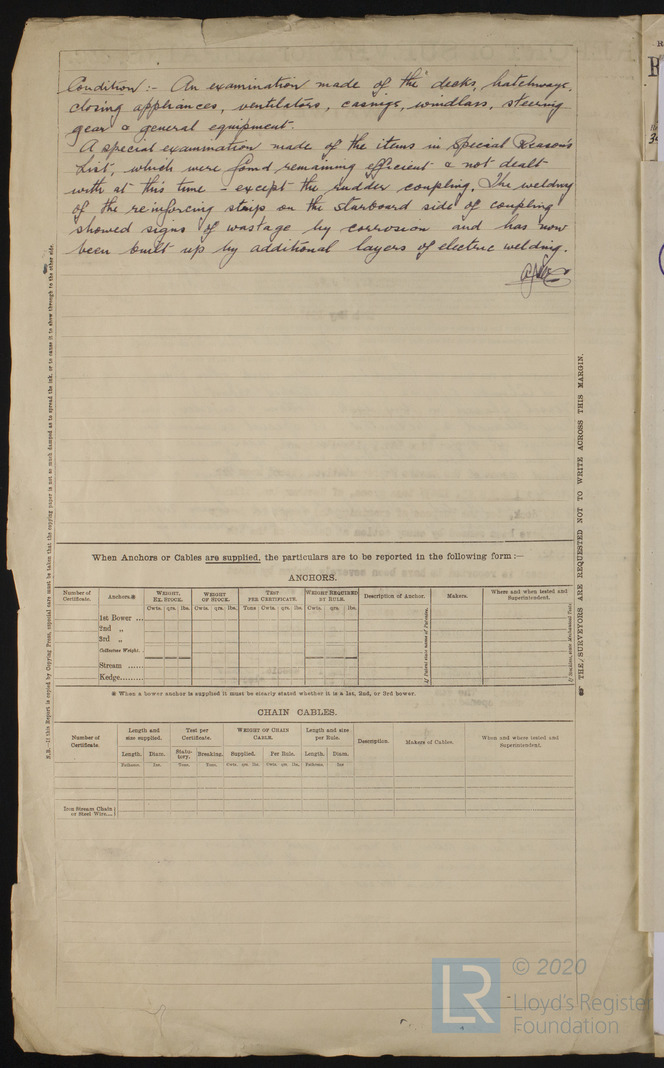 Condition :- An examination made of the decks, hatchways,
closing appliances, ventilators, casings, windlass, steering
gear & general equipment.
A special examination made of the items in Special Reasons
List, which were found remaining efficient & not dealt
with at this time - except the rudder coupling. The welding
of the reinforcing straps on the starboard side of coupling
showed signs of wastage by corrosion and has now
been built up by additional layers of electric welding.
N.B.—If this Report is copied by Copying Press, especial care must be taken that the copying paper is not so much damped as to spread the ink, or to cause it to show through to the other side.
THE SURVEYORS ARE REQUESTED NOT TO WRITE ACROSS THIS MARGIN.
When Anchors or Cables are supplied, the particulars are to be reported in the following form :—
ANCHORS.
Number of Certificate.
Anchors.*
WEIGHT, EX. STOCK.
WEIGHT OF STOCK.
TEST PER CERTIFICATE.
WEIGHT REQUIRED BY RULE.
Description of Anchor.
Makers.
Where and when tested and Superintendent.
Cwts. qrs. lbs.
Cwts. qrs. lbs.
Tons Cwts. qrs. lbs.
Cwts. qrs. lbs.
1st Bower ...
2nd „
3rd „
Collective Weight.
Stream ......
Kedge.........
If Patent state name of Patentee.
* When a bower anchor is supplied it must be clearly stated whether it is a 1st, 2nd, or 3rd bower.
CHAIN CABLES.
Number of Certificate.
Length and size supplied.
Test per Certificate.
WEIGHT OF CHAIN CABLE.
Length and size per Rule.
Description.
Makers of Cables.
When and where tested and Superintendent.
Length. Diam. Statutory. Breaking. Supplied. Per Rule. Length. Diam.
Fathoms. Ins. Tons. Tons. Cwts. qrs. lbs. Cwts. qrs. lbs. Fathoms. Ins
Iron Stream Chain
or Steel Wire....
LR
© 2020
Lloyd's Register
Foundation